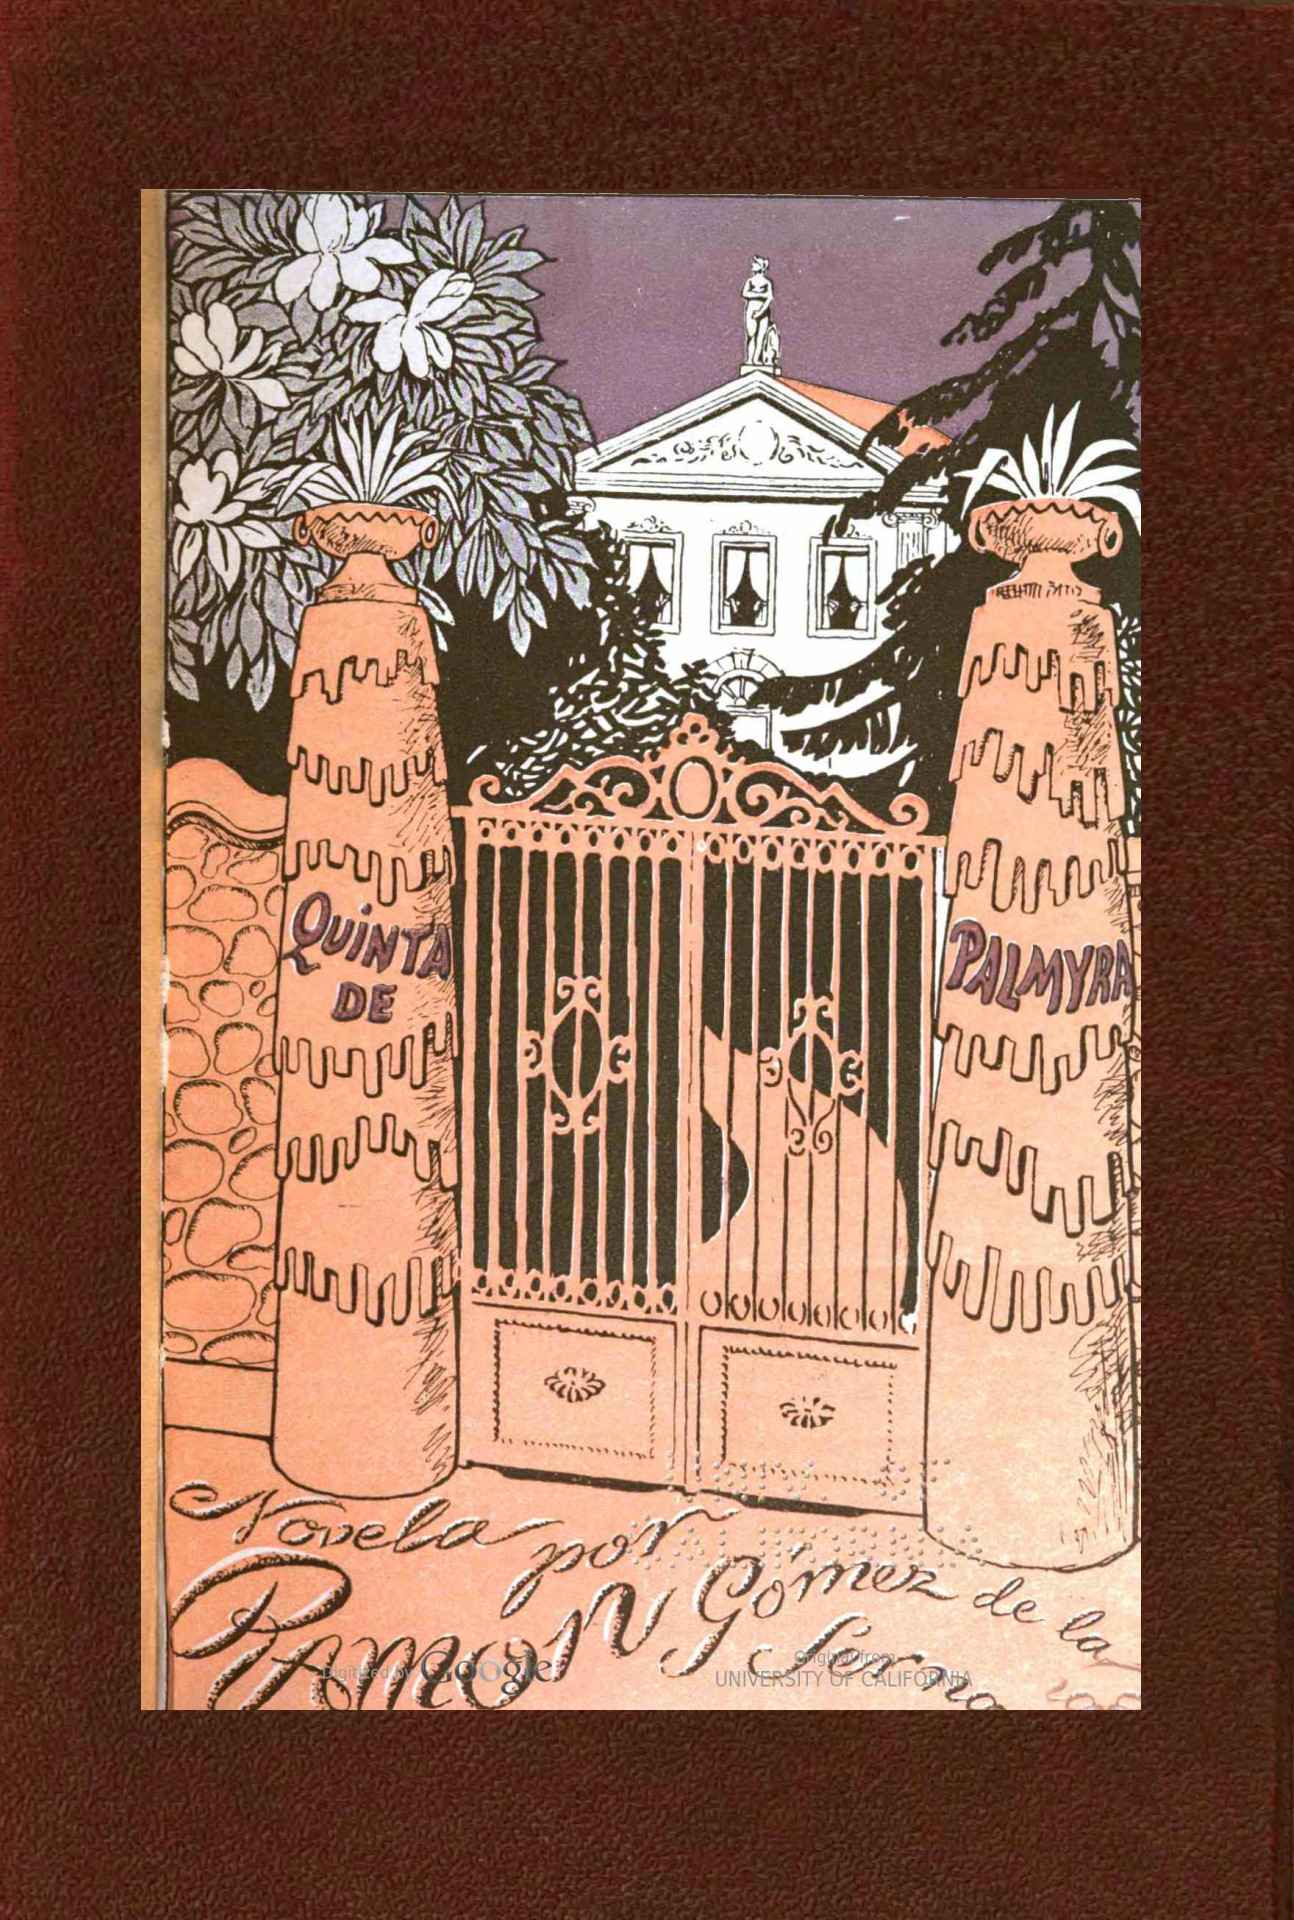 QUINTA
DE
PALMYRA
Novela por
RAMON Gómez de la
Serna
Digitized by Google
Original from
UNIVERSITY OF CALIFORNIA